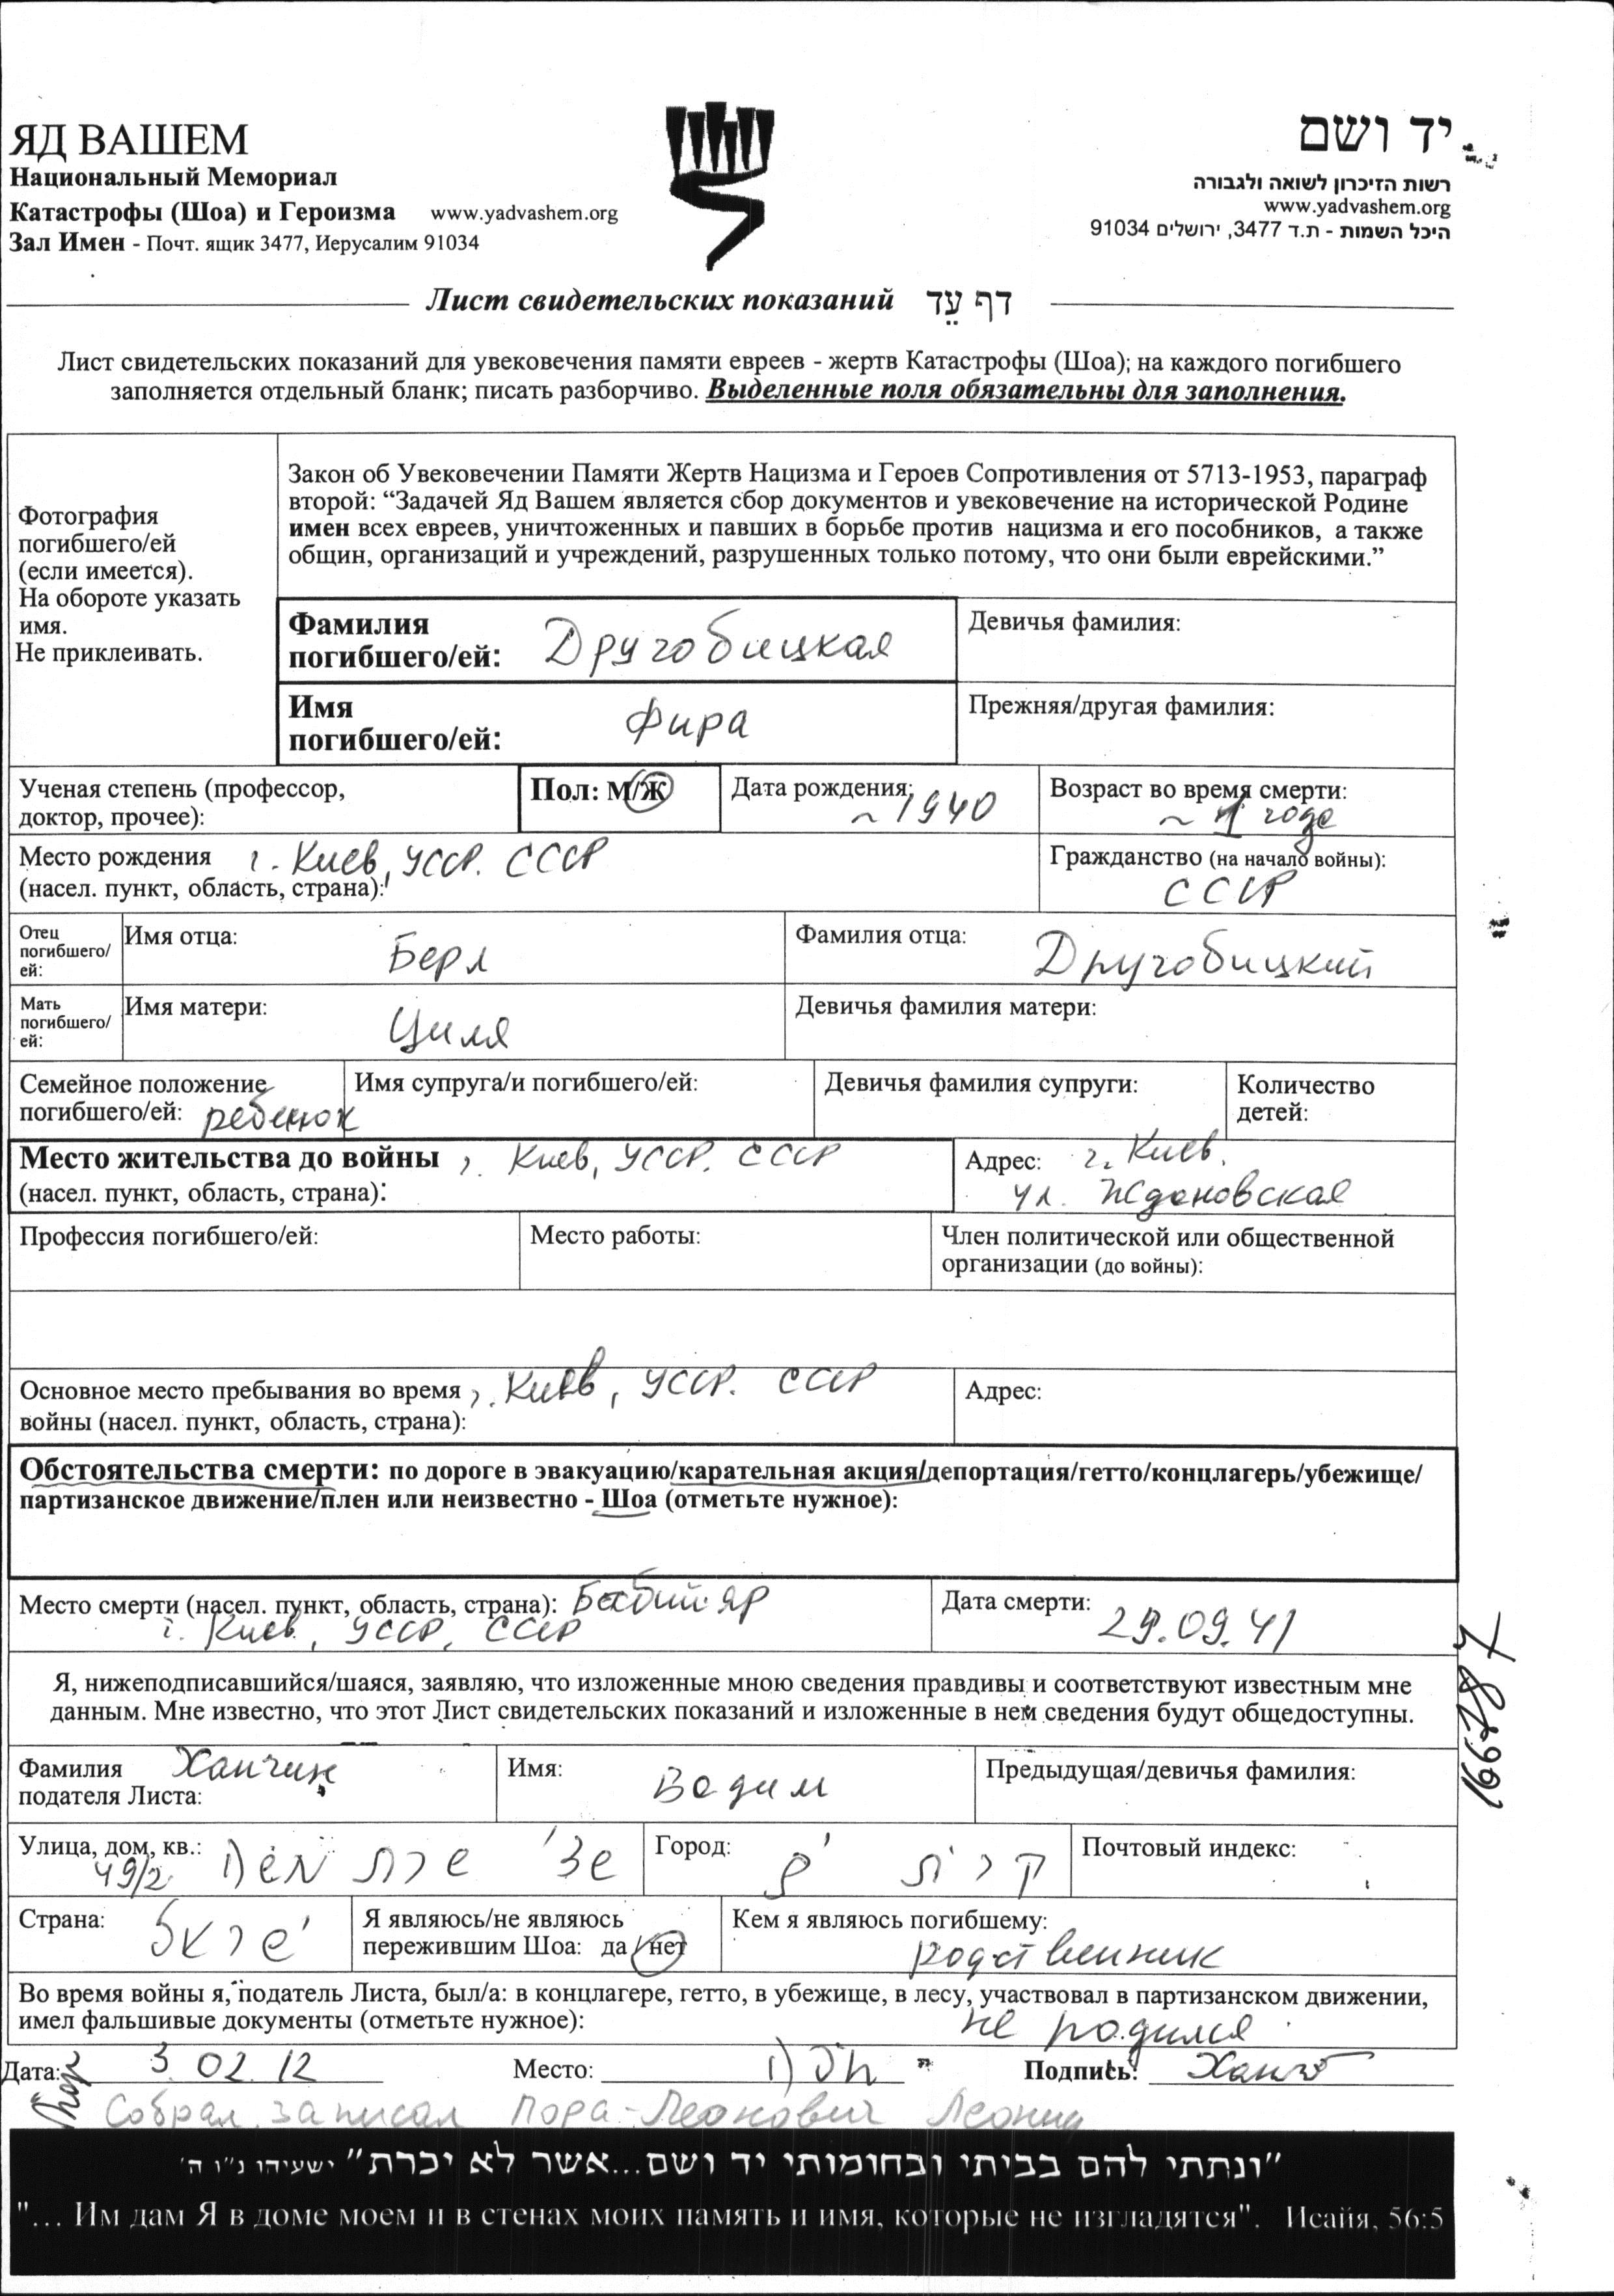 ЯД ВАШЕМ
Национальный Мемориал
Катастрофы (Шоа) и Героизма www.yadvashem.org
Зал Имен - Почт. ящик 3477, Иерусалим 91034
יד ושם
רשות הזיכרון לשואה ולגבורה
www.yadvashem.org
היכל השמות - ת.ד 3477, ירושלים 91034
Лист свидетельских показаний דף עֵד
Лист свидетельских показаний для увековечения памяти евреев - жертв Катастрофы (Шоа); на каждого погибшего
заполняется отдельный бланк; писать разборчиво. Выделенные поля обязательны для заполнения.
Фотография
погибшего/ей
(если имеется).
На обороте указать
имя.
Не приклеивать.
Закон об Увековечении Памяти Жертв Нацизма и Героев Сопротивления от 5713-1953, параграф
второй: “Задачей Яд Вашем является сбор документов и увековечение на исторической Родине
имен всех евреев, уничтоженных и павших в борьбе против нацизма и его пособников, а также
общин, организаций и учреждений, разрушенных только потому, что они были еврейскими.”
Фамилия
погибшего/ей: Другобицкая
Девичья фамилия:
Имя
погибшего/ей: Фира
Прежняя/другая фамилия:
Ученая степень (профессор,
доктор, прочее):
Пол: М/Ж
Дата рождения:
~1940
Возраст во время смерти:
~ 1 года
Место рождения г. Киев, УССР. СССР
(насел. пункт, область, страна):
Гражданство (на начало войны):
СССР
Отец
погибшего/
ей:
Имя отца:
Берл
Фамилия отца:
Другобицкий
Мать
погибшего/
ей:
Имя матери:
Циля
Девичья фамилия матери:
Семейное положение
погибшего/ей: ребенок
Имя супруга/и погибшего/ей:
Девичья фамилия супруги:
Количество
детей:
Место жительства до войны г. Киев, УССР. СССР
(насел. пункт, область, страна):
Адрес: г. Киев.
ул. Ждановская
Профессия погибшего/ей:
Место работы:
Член политической или общественной
организации (до войны):
Основное место пребывания во время г. Киев, УССР. СССР
войны (насел. пункт, область, страна):
Адрес:
Обстоятельства смерти: по дороге в эвакуацию/карательная акция/депортация/гетто/концлагерь/убежище/
партизанское движение/плен или неизвестно - Шоа (отметьте нужное):
Место смерти (насел. пункт, область, страна): Бабий яр
г. Киев, УССР, СССР
Дата смерти:
29.09.41
Я, нижеподписавшийся/шаяся, заявляю, что изложенные мною сведения правдивы и соответствуют известным мне
данным. Мне известно, что этот Лист свидетельских показаний и изложенные в нем сведения будут общедоступны.
Фамилия Ханчин
подателя Листа:
Имя:
Вадим
Предыдущая/девичья фамилия:
Улица, дом, кв.:
49/2 שד' משה
Город:
קרית
Почтовый индекс:
Страна:
ישראל
Я являюсь/не являюсь
пережившим Шоа: да / нет
Кем я являюсь погибшему:
родственник
Во время войны я, податель Листа, был/а: в концлагере, гетто, в убежище, в лесу, участвовал в партизанском движении,
имел фальшивые документы (отметьте нужное): не родился
Дата: 3.02.12
Место:
Подпись:
Собрал, записал Пора-Леонович Леонид
"ונתתי להם בביתי ובחומותי יד ושם...אשר לא יכרת" ישעיהו נ"ו ה'
"... Им дам Я в доме моем и в стенах моих память и имя, которые не изгладятся". Исайя, 56:5